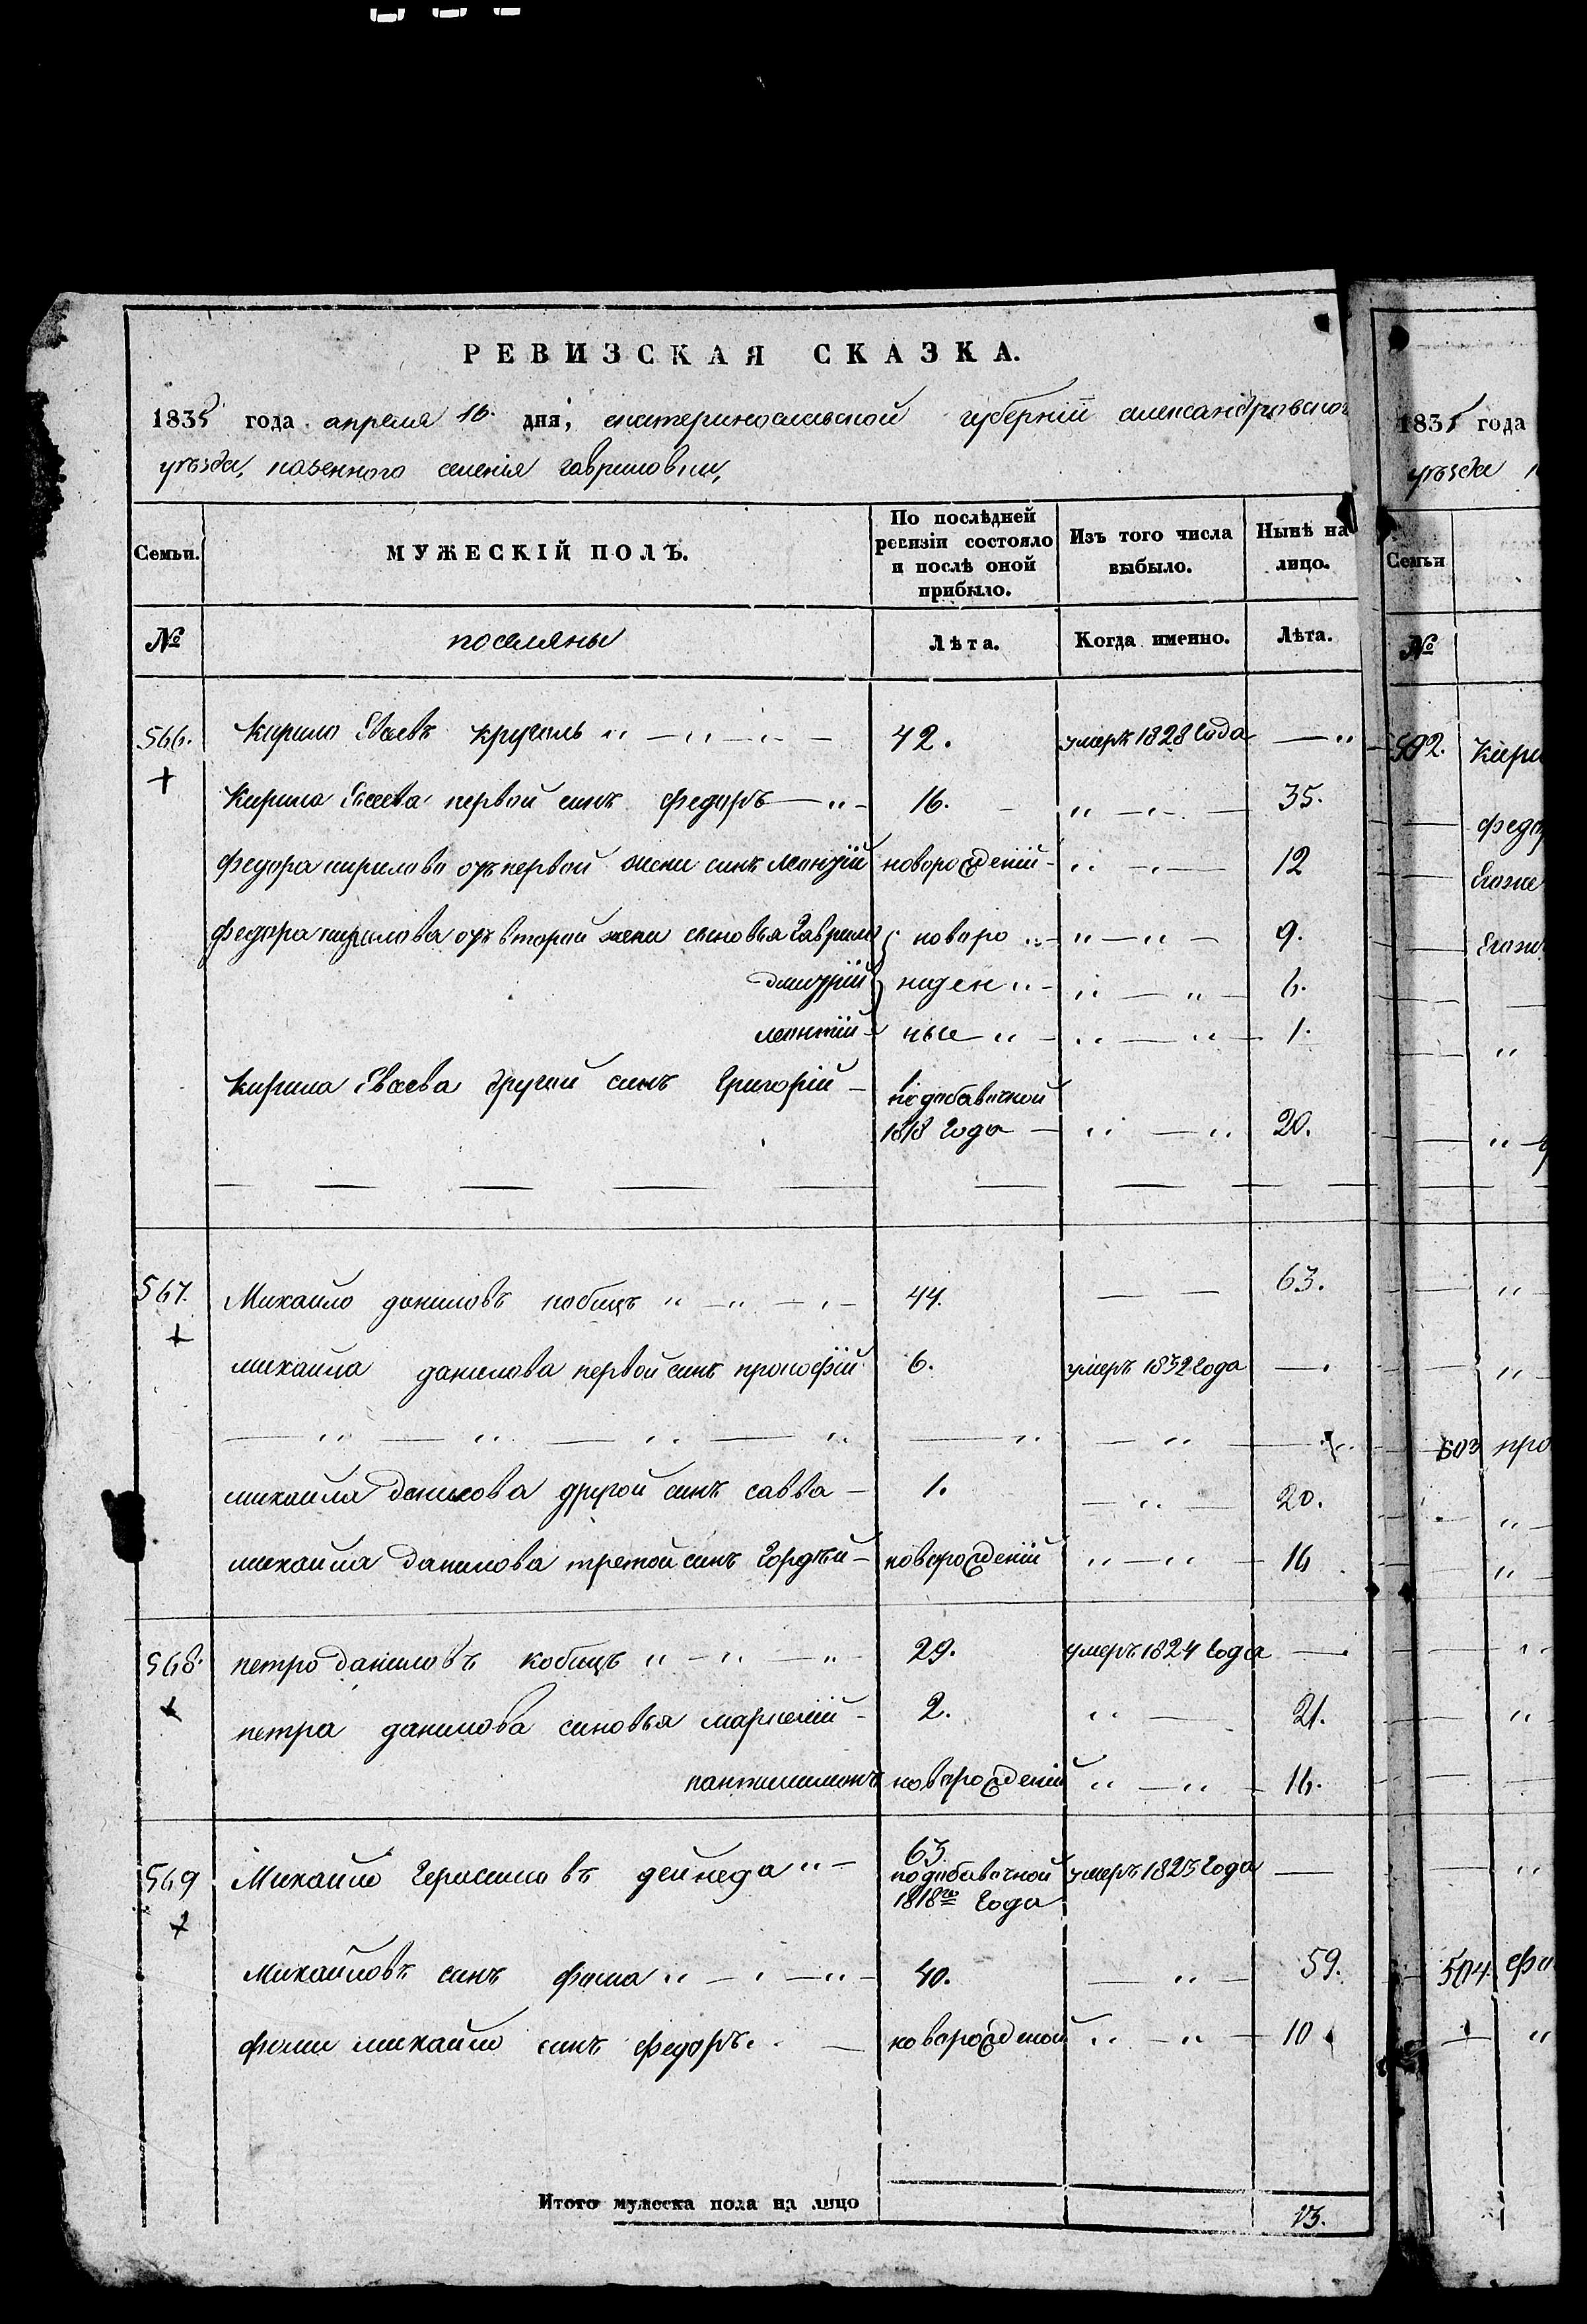 РЕВИЗСКАЯ СКАЗКА.
1835 года апреля 16. дня, екатеринославской губерніи александровского
уѣзда, казенного селенія гавриловки,
Семьи.
МУЖЕСКІЙ ПОЛЪ.
По послѣдней
ревизіи состояло
и послѣ оной
прибыло.
Изъ того числа
выбыло.
Нынѣ на
лицо.
№
поселяны
Лѣта.
Когда именно.
Лѣта.
566. Кирило Евсевъ 42. умеръ 1828 Года
Кирила Евсева первой синъ федоръ 16. 35.
федора кирилова отъ первой жени синъ новорожденій 12
федора кирилова отъ второй жени сыновья Гаврило новоро 9.
дмитрій жден 6.
леонтій ные 1.
Кирила Евсева другой синъ Григорій подобавочной
1818 Года 20.
567. Михайло даниловъ кобецъ 44. 63.
михайла данилова первой синъ прокофій 6. умеръ 1832 Года
михайла данилова другой синъ савва 1. 20.
михайла данилова третой синъ Гордѣй новорожденій 16
568. петро даниловъ кобецъ 29. умеръ 1824 Года
петра данилова синовья маркелій 2. 21.
пантилимонъ новорожденій 16.
569 Михайло Герасимовъ дейнеда 63
подобавочной умеръ 1823 Года
1818го Года
Михайловъ синъ фома 40. 59.
фоми михайло синъ федоръ новорожденой 10
Итого мужеска пола на лицо 13.
1835 года
уѣзда
Семьи
№
592. Кири
федо
603 про
504 фо